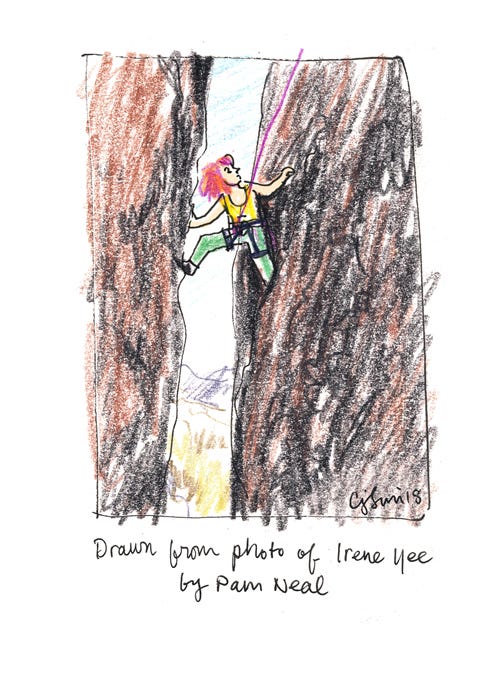 Drawn from photo of Irene Yee
by Pam Neal